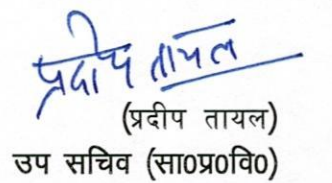 प्रदीप तायल
(प्रदीप तायल)
उप सचिव (सा0प्र0वि0)